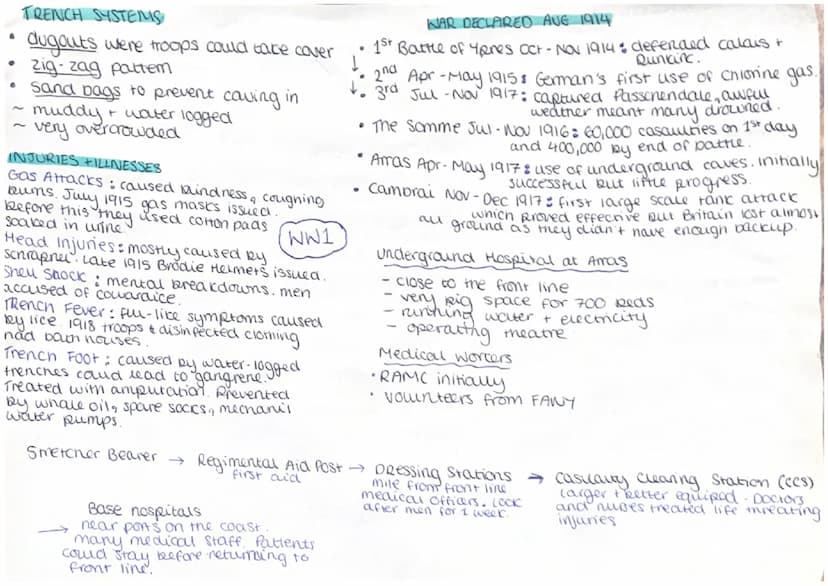 TRENCH SYSTEMS
• dugouts were troops could take cover
• zig-zag pattern
• sand bags to prevent caving in
~ muddy + water logged
~ very overcrowded
INJURIES + ILLNESSES
Gas Attacks : caused blindness, coughing
burns. July 1915 gas masks issued.
before this they used cotton pads
soaked in urine.
Head Injuries : mostly caused by
schrapnel. Late 1915 Brodie Helmets issued.
Shell Shock : mental breakdowns. men
accused of cowardice.
Trench Fever : flu-like symptoms caused
by lice. 1918 troops + disinfected clothing
had bath houses.
Trench Foot : caused by water-logged
trenches could lead to gangrene.
Treated with amputation. Prevented
by whale oil, spare socks,
water pumps.
WW1
WAR DECLARED AUG 1914
• 1st Battle of Ypres Oct - Nov 1914 : defended calais +
Dunkirk.
↓ • 2nd Apr - May 1915 : German's first use of chlorine gas.
↓ • 3rd Jul - Nov 1917 : captured Passchendale, awful
weather meant many drowned.
• The Somme Jul - Nov 1916 : 60,000 casualties on 1st day
and 400,000 by end of battle.
• Arras Apr - May 1917 : use of underground caves. initially
successful but little progress.
• Cambrai Nov - Dec 1917 : first large scale tank attack
which proved effective but Britain lost almost
all ground as they didn't have enough backup.
Underground Hospital at Arras
- close to the front line
- very big space for 700 beds
- running water + electricity
- operating theatre
Medical Workers
• RAMC initially
• volunteers from FANY
Stretcher Bearer → Regimental Aid Post → Dressing Stations → Casualty Clearing Station (CCS)
first aid
mile from front line
medical officers. Look
after men for 1 week.
Larger + better equipped. Doctors
and nurses treated life threating
injuries
Base hospitals
→ near ports on the coast.
many medical staff. Patients
could stay before returning to
front line.